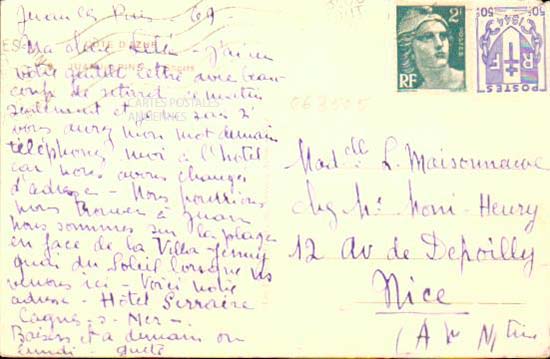 Juan les Pins
Ma chère Lélé - J'ai eu
votre gentille lettre avec beau-
coup de retard ce matin
seulement et je
vous aurez mon mot demain
téléphonez moi à l'hôtel
car nous avons changé
d'adresse - Nous pourrions
nous trouver à Juan
nous sommes sur la plage
en face de la Villa Jenny
quai du Soleil lorsque ns
venons ici - Voici notre
adresse - Hôtel Serraire
Cagnes-s-Mer -
Baisers et à demain ou
lundi -
CÔTE D'AZUR
JUAN LES PINS
CARTES POSTALES
ANCIENNES
2F
POSTES
RF
50c
1944
50c
RF
POSTES
Mad elle L. Maisonnave
chez Mr Moni-Heury
12 Av de Depoilly
Nice
(A M Mtes